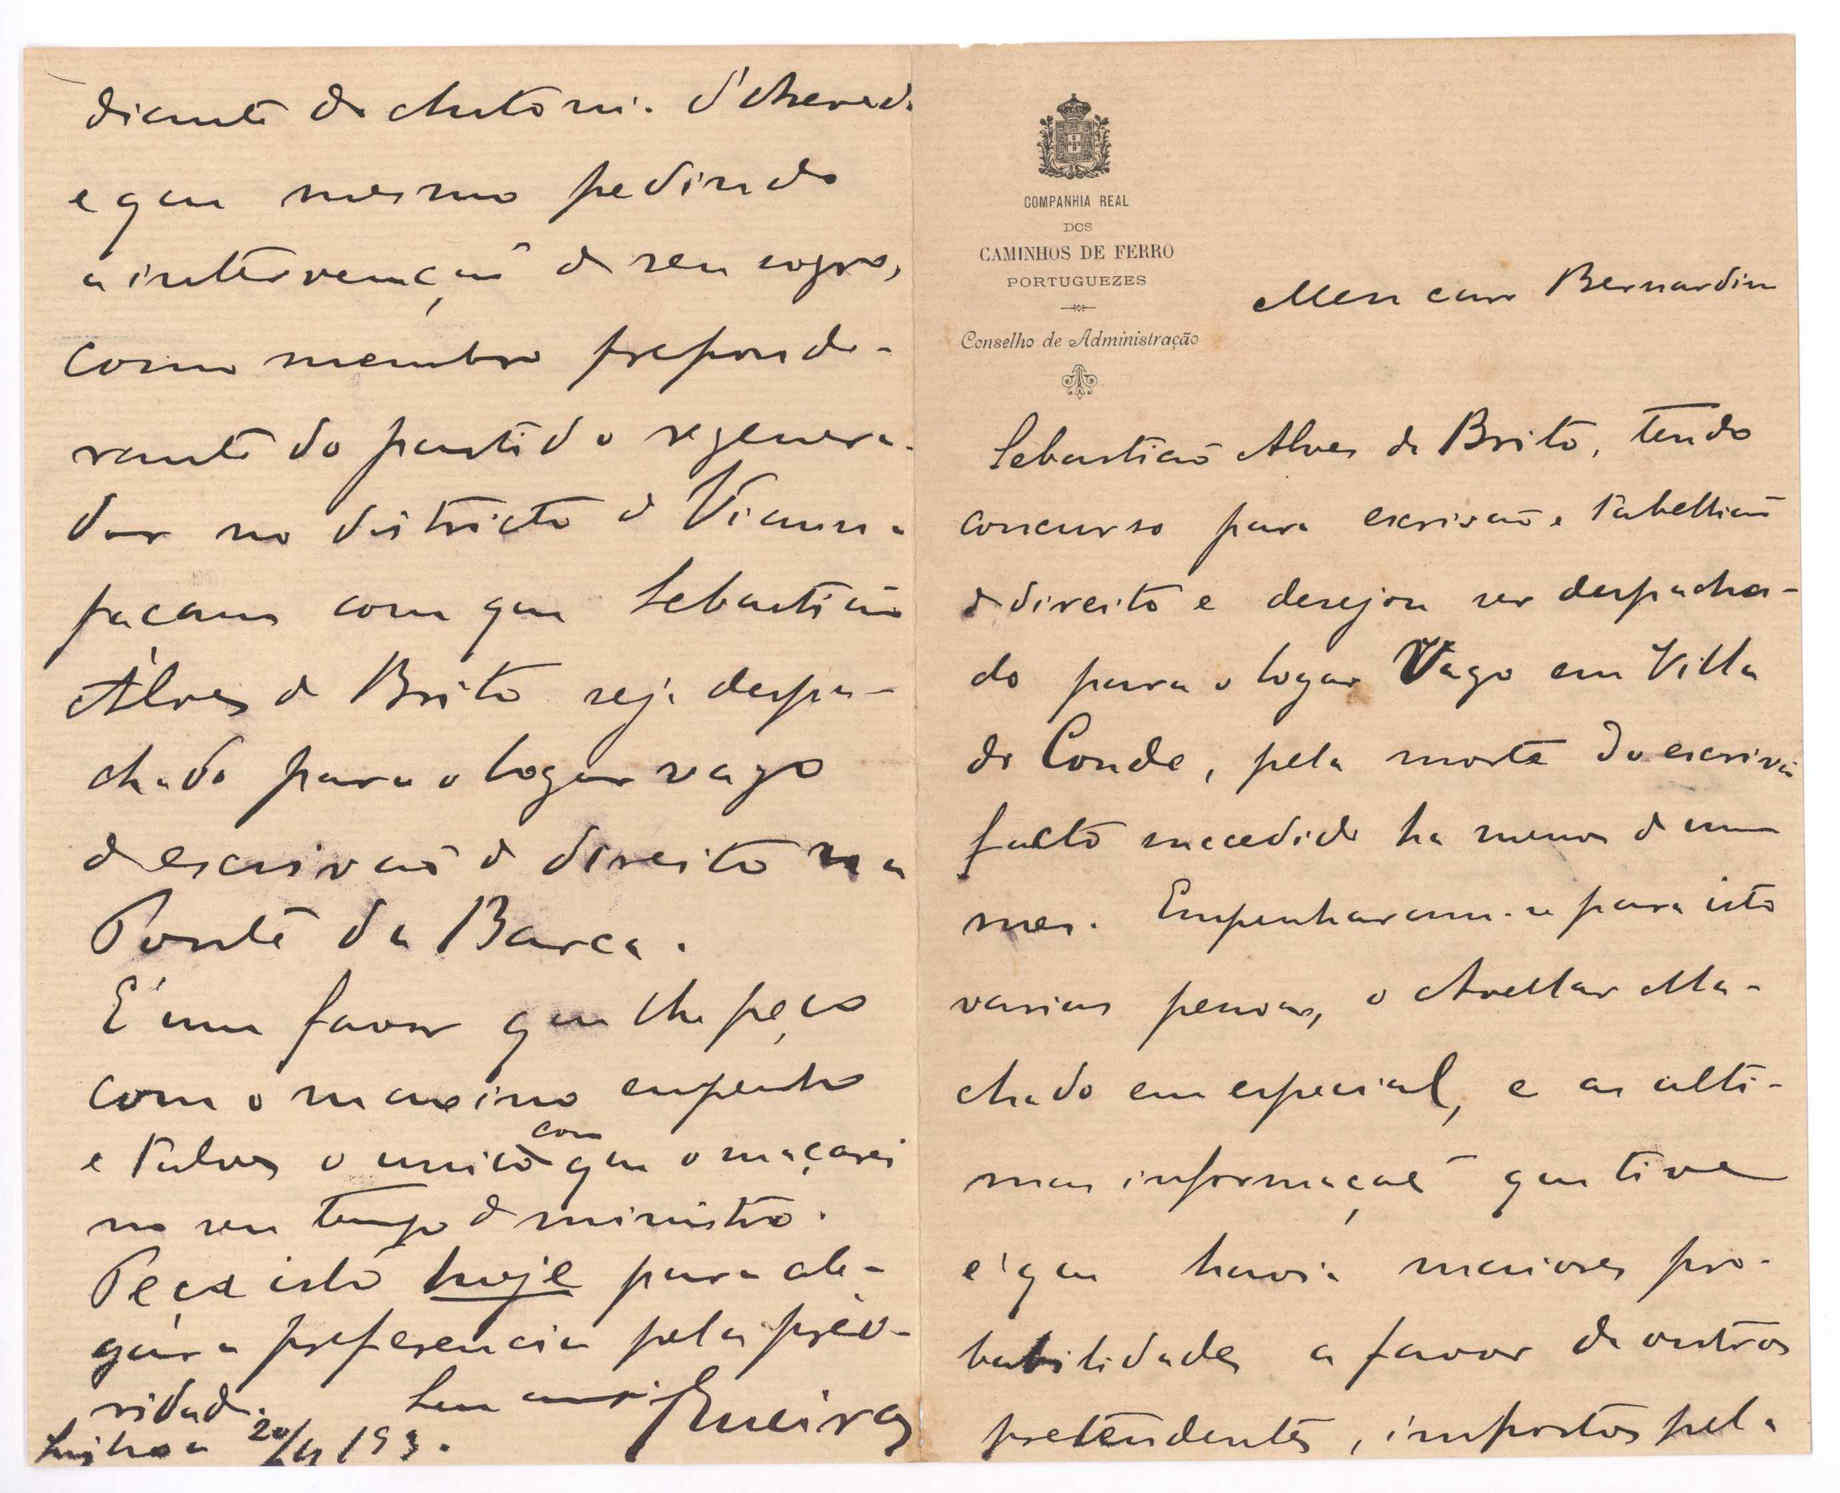 COMPANHIA REAL
DOS
CAMINHOS DE FERRO
PORTUGUEZES
Conselho de Administração
Meu caro Bernardino
Sebastião Alves de Brito, tendo
concurso para escrivão e tabellião
de direito e desejou ser despacha-
do para o logar vago em Villa
do Conde, pela morte do escrivão
facto succedido ha menos de um
mez. Empenharam-se para isto
varias pessoas, o Avellar Ma-
chado em especial, e as ulti-
mas informações que tive
é que havia maiores pro-
babilidades a favor de outros
pretendentes, impostos pela
diante de Antonio d'Azevedo
e que mesmo pedindo
a intervenção de seu sogro,
como membro preponde-
rante do partido regenera-
dor no districto de Vianna
façam com que Sebastião
Alves de Brito seja despa-
chado para o logar vago
de escrivão de direito na
Ponte da Barca.
É um favor que lhe peço
com o maximo empenho
e talvez o unico com que o maçarei
no seu tempo de ministro.
Peça isto hoje para ale-
gar a preferencia pela prio-
ridade. Seu am.
Lisboa 20/4/93.